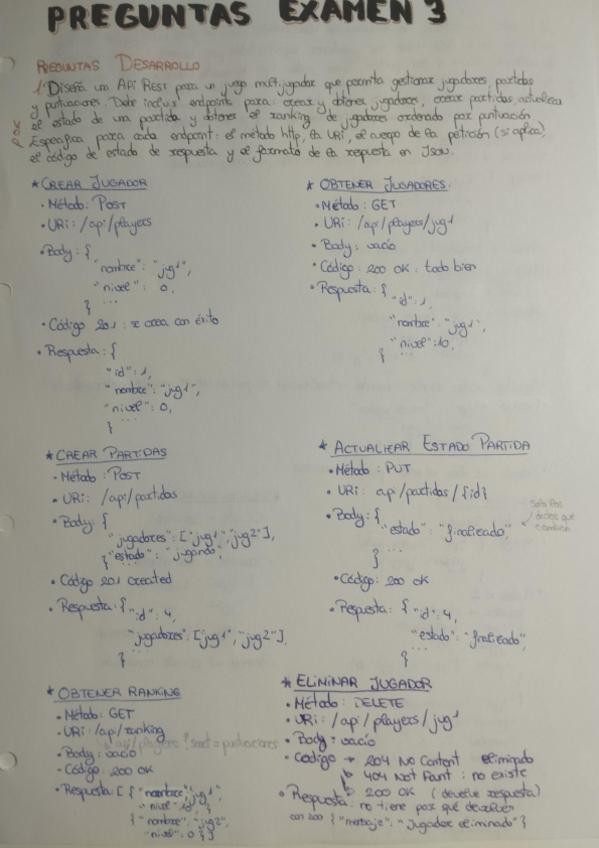 PREGUNTAS EXAMEN 3
PREGUNTAS DESARROLLO
1. Diseña un Api Rest para un juego multijugador que permita gestionar jugadores, partidas
y puntuaciones. Debe incluir endpoints para: crear y obtener jugadores, crear partidas, actualizar
el estado de una partida y obtener el ranking de jugadores ordenado por puntuación
Especifica para cada endpoint: el método http, la URI, el cuerpo de la petición (si aplica),
el código de estado de respuesta y el formato de la respuesta en Json.
* CREAR JUGADOR
· Método: POST
· URi: /api/players
· Body: {
"nombre": "jug1",
"nivel": 0,
...
}
· Código 201: se crea con éxito
· Respuesta: {
"id": 1,
"nombre": "jug1",
"nivel": 0,
...
}
* OBTENER JUGADORES:
· Método: GET
· URi: /api/players/jug1
· Body: vacío
· Código: 200 OK: todo bien
· Respuesta: {
"id": 1,
"nombre": "jug1",
"nivel": 10,
} ...
* CREAR PARTIDAS
· Método: POST
· URi: /api/partidas
· Body: {
"jugadores": ["jug1", "jug2"],
"estado": "jugando",
} ...
· Código 201 created
· Respuesta: { "id": 4,
"jugadores": ["jug1", "jug2"],
} ...
* ACTUALIZAR ESTADO PARTIDA
· Método: PUT
· URi: api/partidas/{id}
· Body: {
"estado": "finalizado",
...
}
Solo los
datos que
cambian
· Código: 200 OK
· Respuesta: { "id": 4,
"estado": "finalizado",
} ...
* OBTENER RANKING
· Método: GET
· URi: /api/ranking
/api/players?sort=puntuaciones
· Body: vacío
· Código: 200 OK
· Respuesta: [ { "nombre": "jug1",
"nivel": 10, }
{ "nombre": "jug2",
"nivel": 0 } ]
* ELIMINAR JUGADOR
· Método: DELETE
· URi: /api/players/jug1
· Body: vacío
· Código → 204 No Content eliminado
→ 404 Not Fount: no existe
→ 200 OK (devuelve respuesta)
· Respuesta: no tiene por qué devolver
con 200 { "mensaje": "Jugador eliminado" }